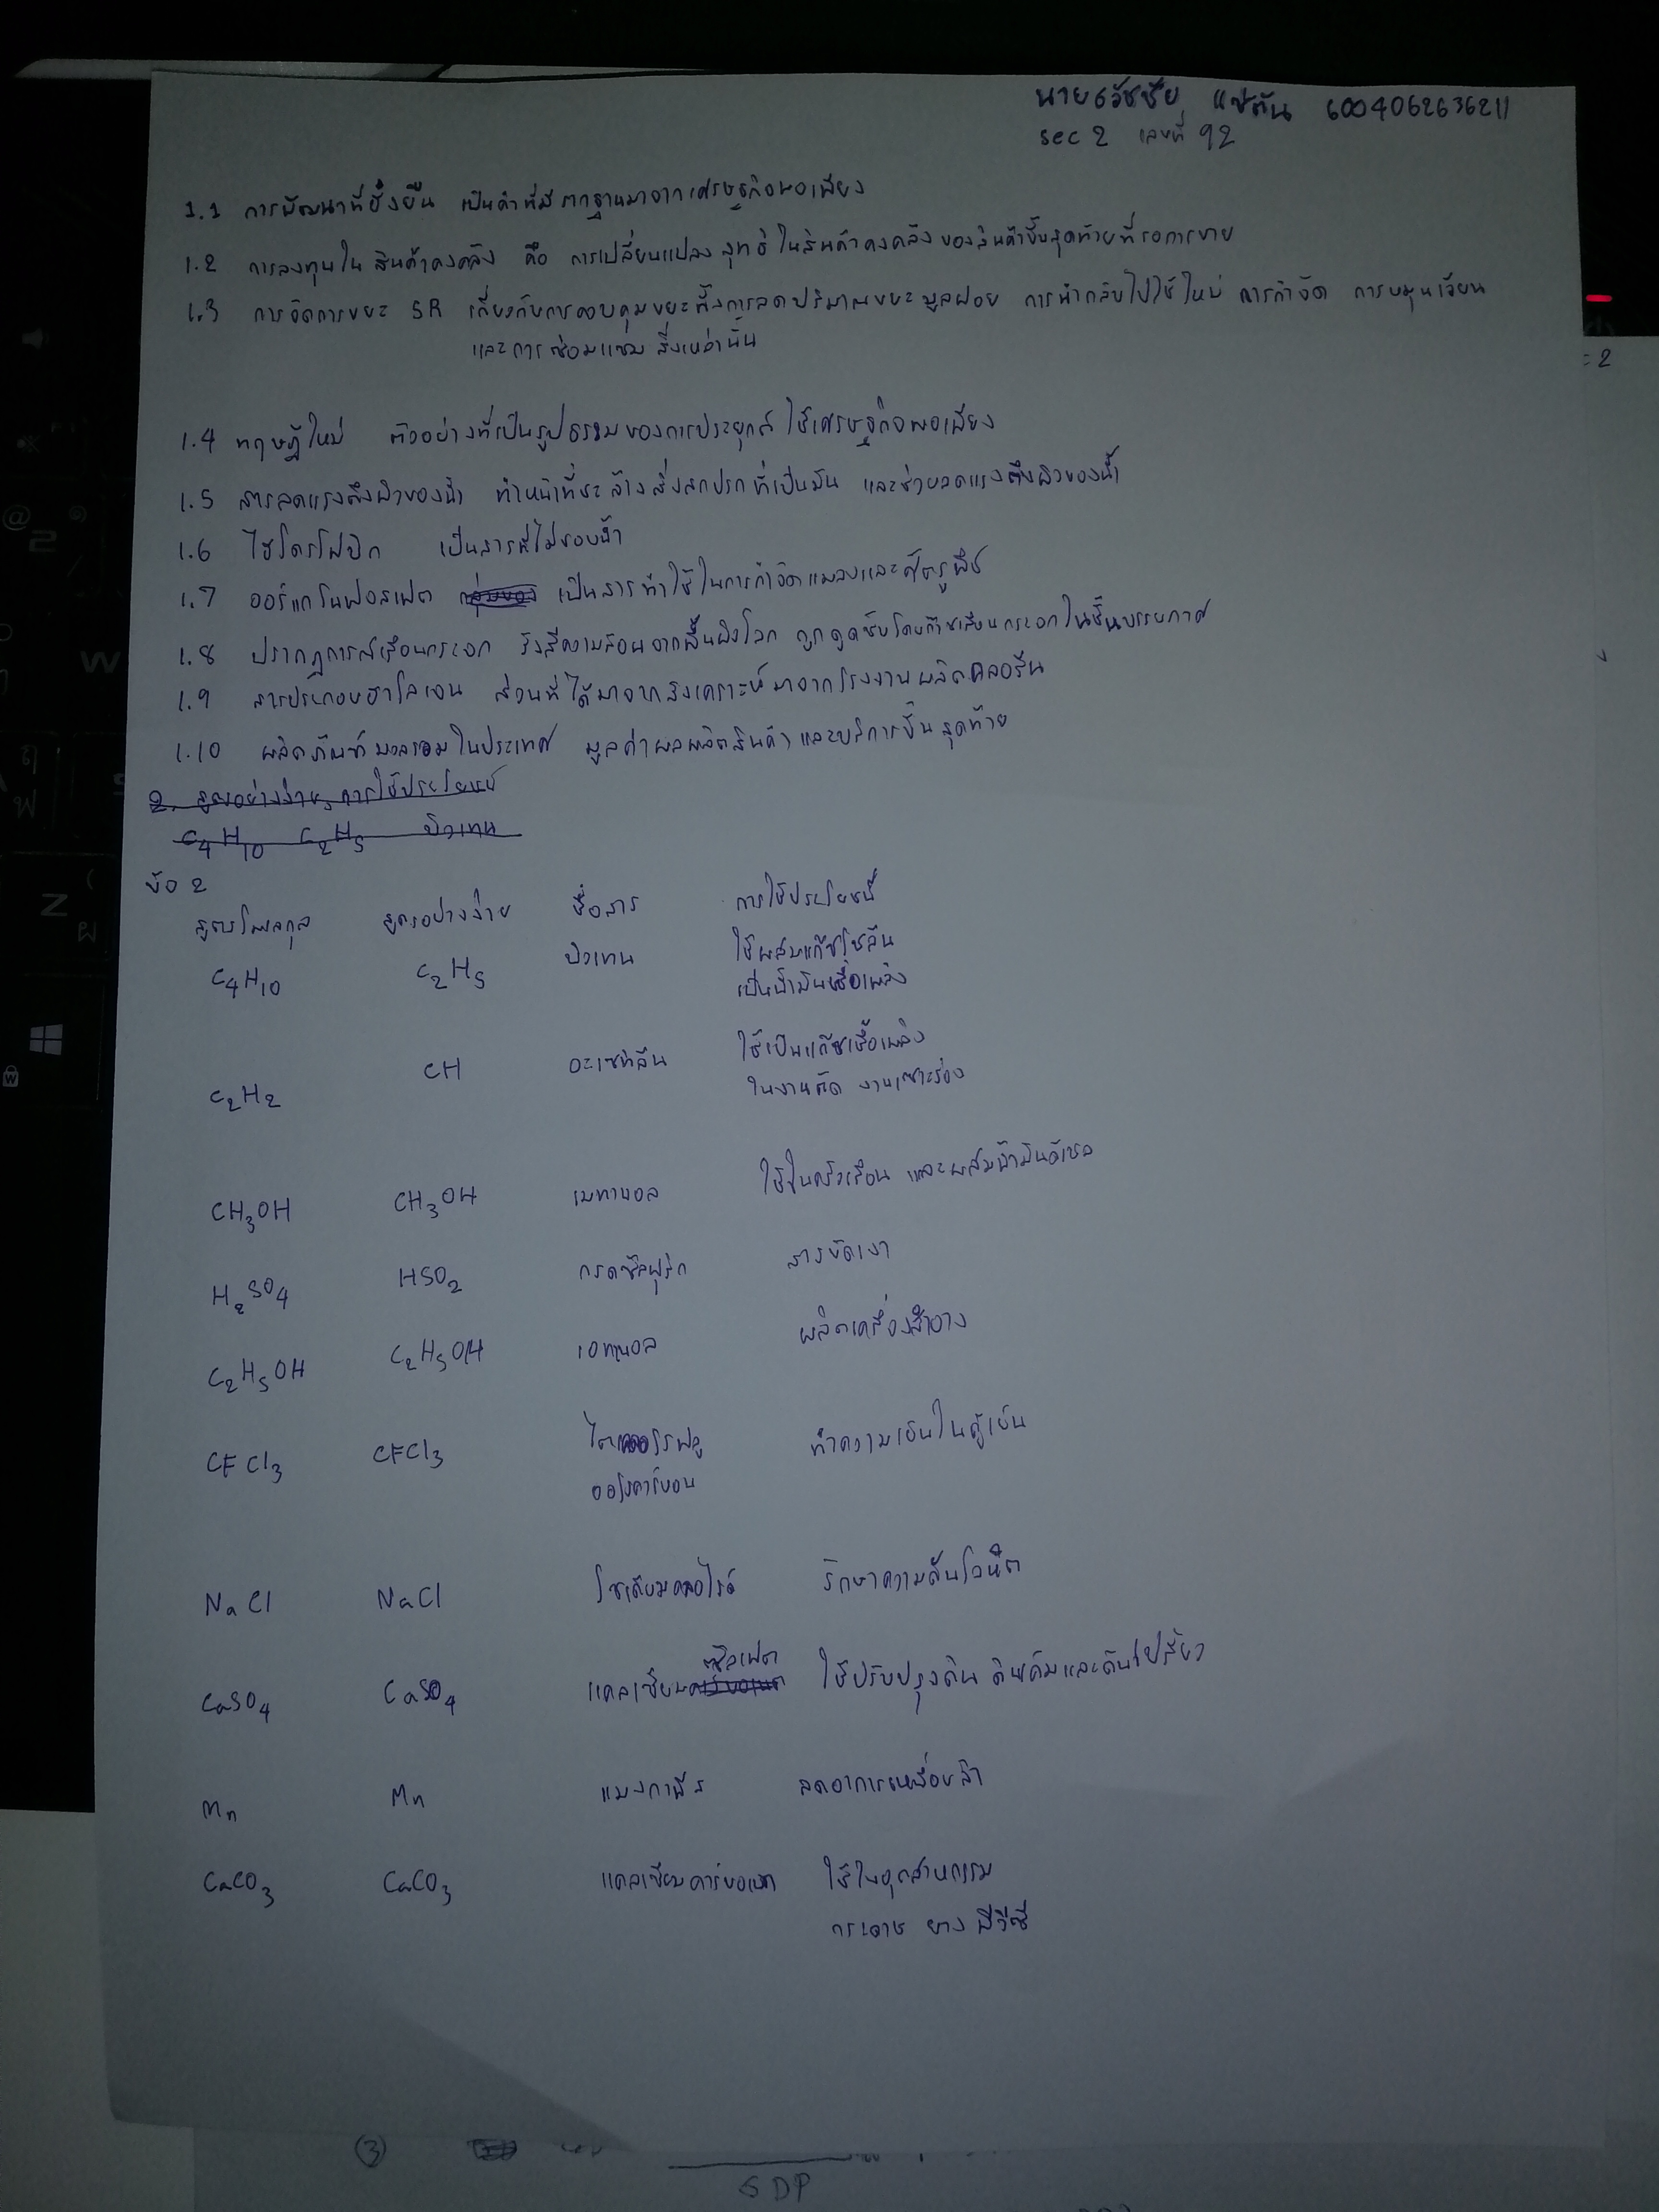 นายธวัชชัย แซ่ตัน 6004062636211
sec 2 เลขที่ 92
1.1 การพัฒนาที่ยั่งยืน เป็นคำที่มีรากฐานมาจากเศรษฐกิจพอเพียง
1.2 การลงทุนในสินค้าคงคลัง คือ การเปลี่ยนแปลงสุทธิในสินค้าคงคลังของสินค้าขั้นสุดท้ายที่รอการขาย
1.3 การจัดการขยะ 5R เกี่ยวกับการควบคุมขยะทั้งการลดปริมาณขยะมูลฝอย การนำกลับไปใช้ใหม่ การกำจัด การหมุนเวียน
และการซ่อมแซมสิ่งเหล่านั้น
= 2
1.4 ทฤษฎีใหม่ ตัวอย่างที่เป็นรูปธรรมของการประยุกต์ใช้เศรษฐกิจพอเพียง
1.5 สารลดแรงตึงผิวของน้ำ ทำหน้าที่ชะล้างสิ่งสกปรกที่เป็นมัน และช่วยลดแรงตึงผิวของน้ำ
1.6 ไฮโดรโฟบิก เป็นสารที่ไม่ชอบน้ำ
1.7 ออร์แกโนฟอสเฟต เป็นสารทำใช้ในการกำจัดแมลงและศัตรูพืช
1.8 ปรากฏการณ์เรือนกระจก รังสีความร้อนจากพื้นผิวโลก ถูกดูดซับโดยก๊าซเรือนกระจกในชั้นบรรยกาศ
1.9 สารประกอบฮาโลเจน ส่วนที่ได้มาจากสังเคราะห์มาจากโรงงานผลิตคลอรีน
1.10 ผลิตภัณฑ์มวลรวมในประเทศ มูลค่าผลผลิตสินค้าและบริการขั้นสุดท้าย
2. สูตรอย่างง่าย, การใช้ประโยชน์
C4H10 C2H5 บิวเทน
ข้อ 2
สูตรโมเลกุล สูตรอย่างง่าย ชื่อสาร การใช้ประโยชน์
C4H10 C2H5 บิวเทน ใช้ผสมแก๊ซโซลีน
เป็นน้ำมันเชื้อเพลิง
C2H2 CH อะเซทิลีน ใช้เป็นแก๊ซเชื้อเพลิง
ในงานตัด งานเซาะร่อง
CH3OH CH3OH เมทานอล ใช้ในครัวเรือน และผสมน้ำมันดีเซล
H2SO4 HSO2 กรดซัลฟุริก สารขัดเงา
C2H5OH C2H5OH เอทานอล ผลิตเครื่องสำอาง
CFCl3 CFCl3 ทำความเย็นในตู้เย็น
NaCl NaCl โซเดียมคลอไรด์ รักษาความดันโลหิต
CaSO4 CaSO4 แคลเซียมซัลเฟต ใช้ปรับปรุงดิน ดินเค็มและดินเปรี้ยว
Mn Mn แมงกานีส ลดอาการเหนื่อยล้า
CaCO3 CaCO3 แคลเซียมคาร์บอเนต ใช้ในอุตสาหกรรม
กระดาษ ยาง พีวีซี
(3)
GDP